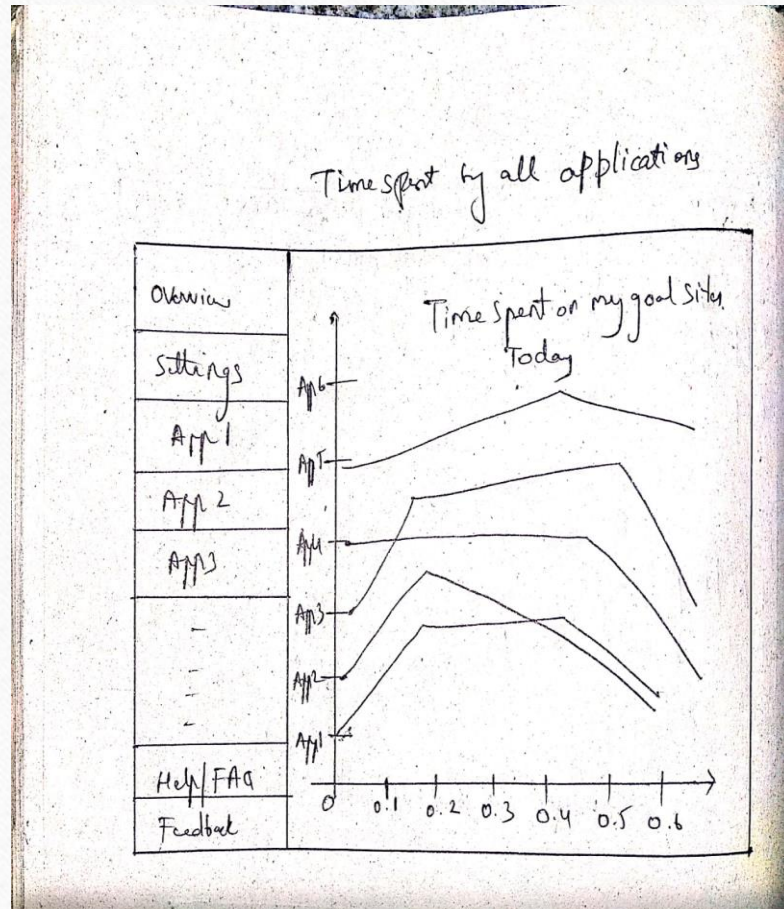 Time spent by all applications
Overview
Settings
App 1
App 2
App3
Help/FAQ
Feedback
Time Spent on my goal sites
Today
App6
App5
App4
App3
App2
App1
0
0.1
0.2
0.3
0.4
0.5
0.6